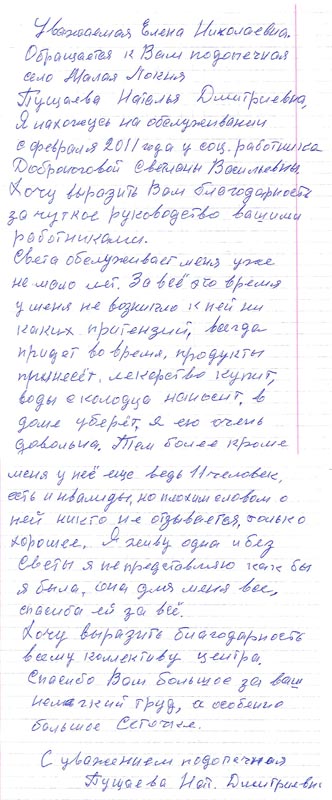 Уважаемая Елена Николаевна.
Обращается к Вам подопечная
село Малая Локня
Пущаева Наталья Дмитриевна,
Я нахожусь на обслуживании
с февраля 2011 года у соц. работника
Доброноговой Светланы Васильевны.
Хочу выразить Вам благодарность
за чуткое руководство вашими
работниками.
Света обслуживает меня уже
не мало лет. За всё это время
у меня не возникло к ней ни
каких притензий, всегда
придет во время, продукты
принесёт, лекарство купит,
воды с колодца наносит, в
доме уберёт, я ею очень
довольна. Тем более кроме
меня у неё еще ведь 11 человек,
есть и инвалиды, но плохим словом о
ней никто не отзывается, только
хорошее. Я живу одна и без
Светы я не представляю как бы
я была, она для меня все,
спасиба ей за всё.
Хочу выразить благодарность
всему коллективу центра.
Спасибо Вам большое за ваш
нелегкий труд, а особенно
большое Светочке.
С уважением подопечная
Пущаева Нат. Дмитриевн